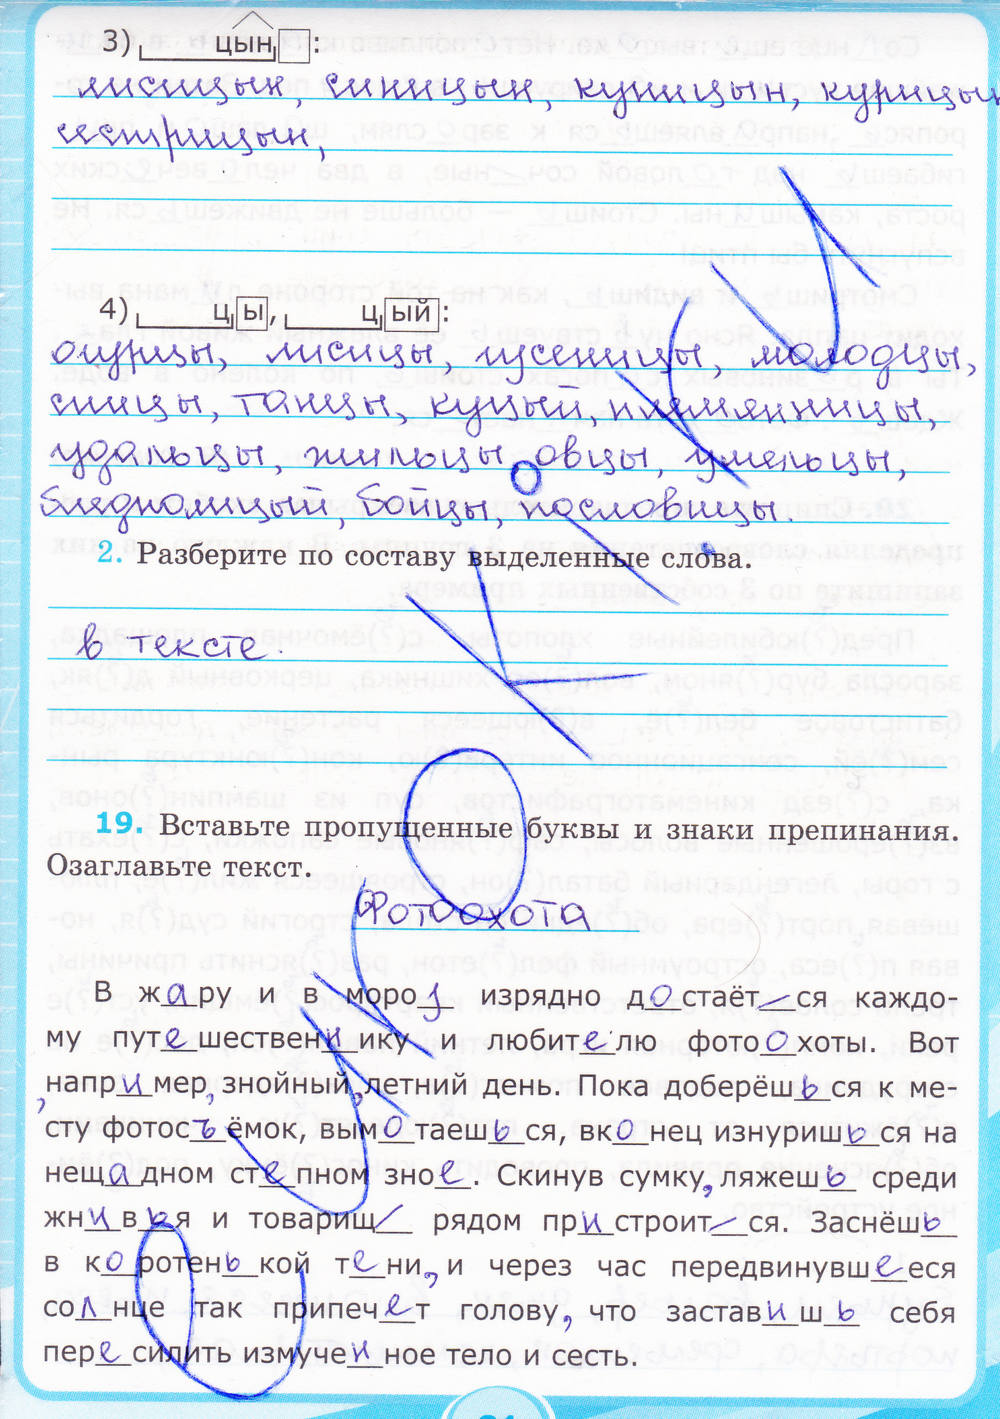 3) цын :
лисицын, синицын, куницын, курицын
сестрицын,
4) ц ы , ц ый :
огурцы, лисицы, гусеницы, молодцы,
спицы, танцы, куцый, племянницы,
удальцы, жильцы, овцы, умельцы,
бледнолицый, бойцы, пословицы.
2. Разберите по составу выделенные слова.
в тексте.
19. Вставьте пропущенные буквы и знаки препинания.
Озаглавьте текст.
Фотоохота
В жару и в мороз изрядно достаёт–ся каждо-
му путешественнику и любителю фотоохоты. Вот
например, знойный, летний день. Пока доберёшься к ме-
сту фотосъёмок, вымотаешься, вконец изнуришься на
нещадном степном зное. Скинув сумку, ляжешь среди
жнивья и товарищ– рядом пристроит–ся. Заснёшь
в коротенькой тени, и через час передвинувшееся
солнце так припечёт голову, что заставишь себя
пересилить измученное тело и сесть.